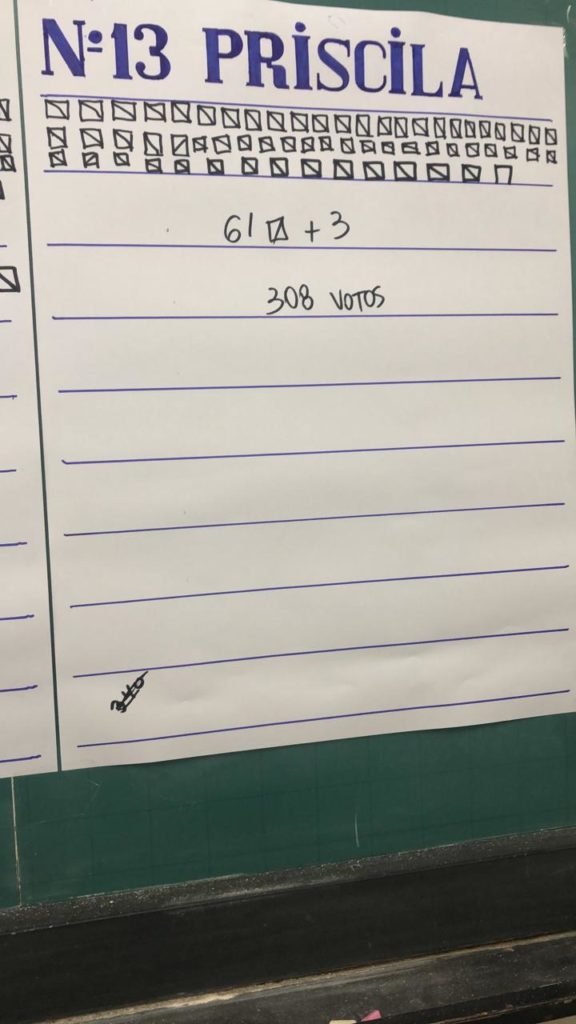 Nº13 PRISCILA
61 + 3
308 VOTOS